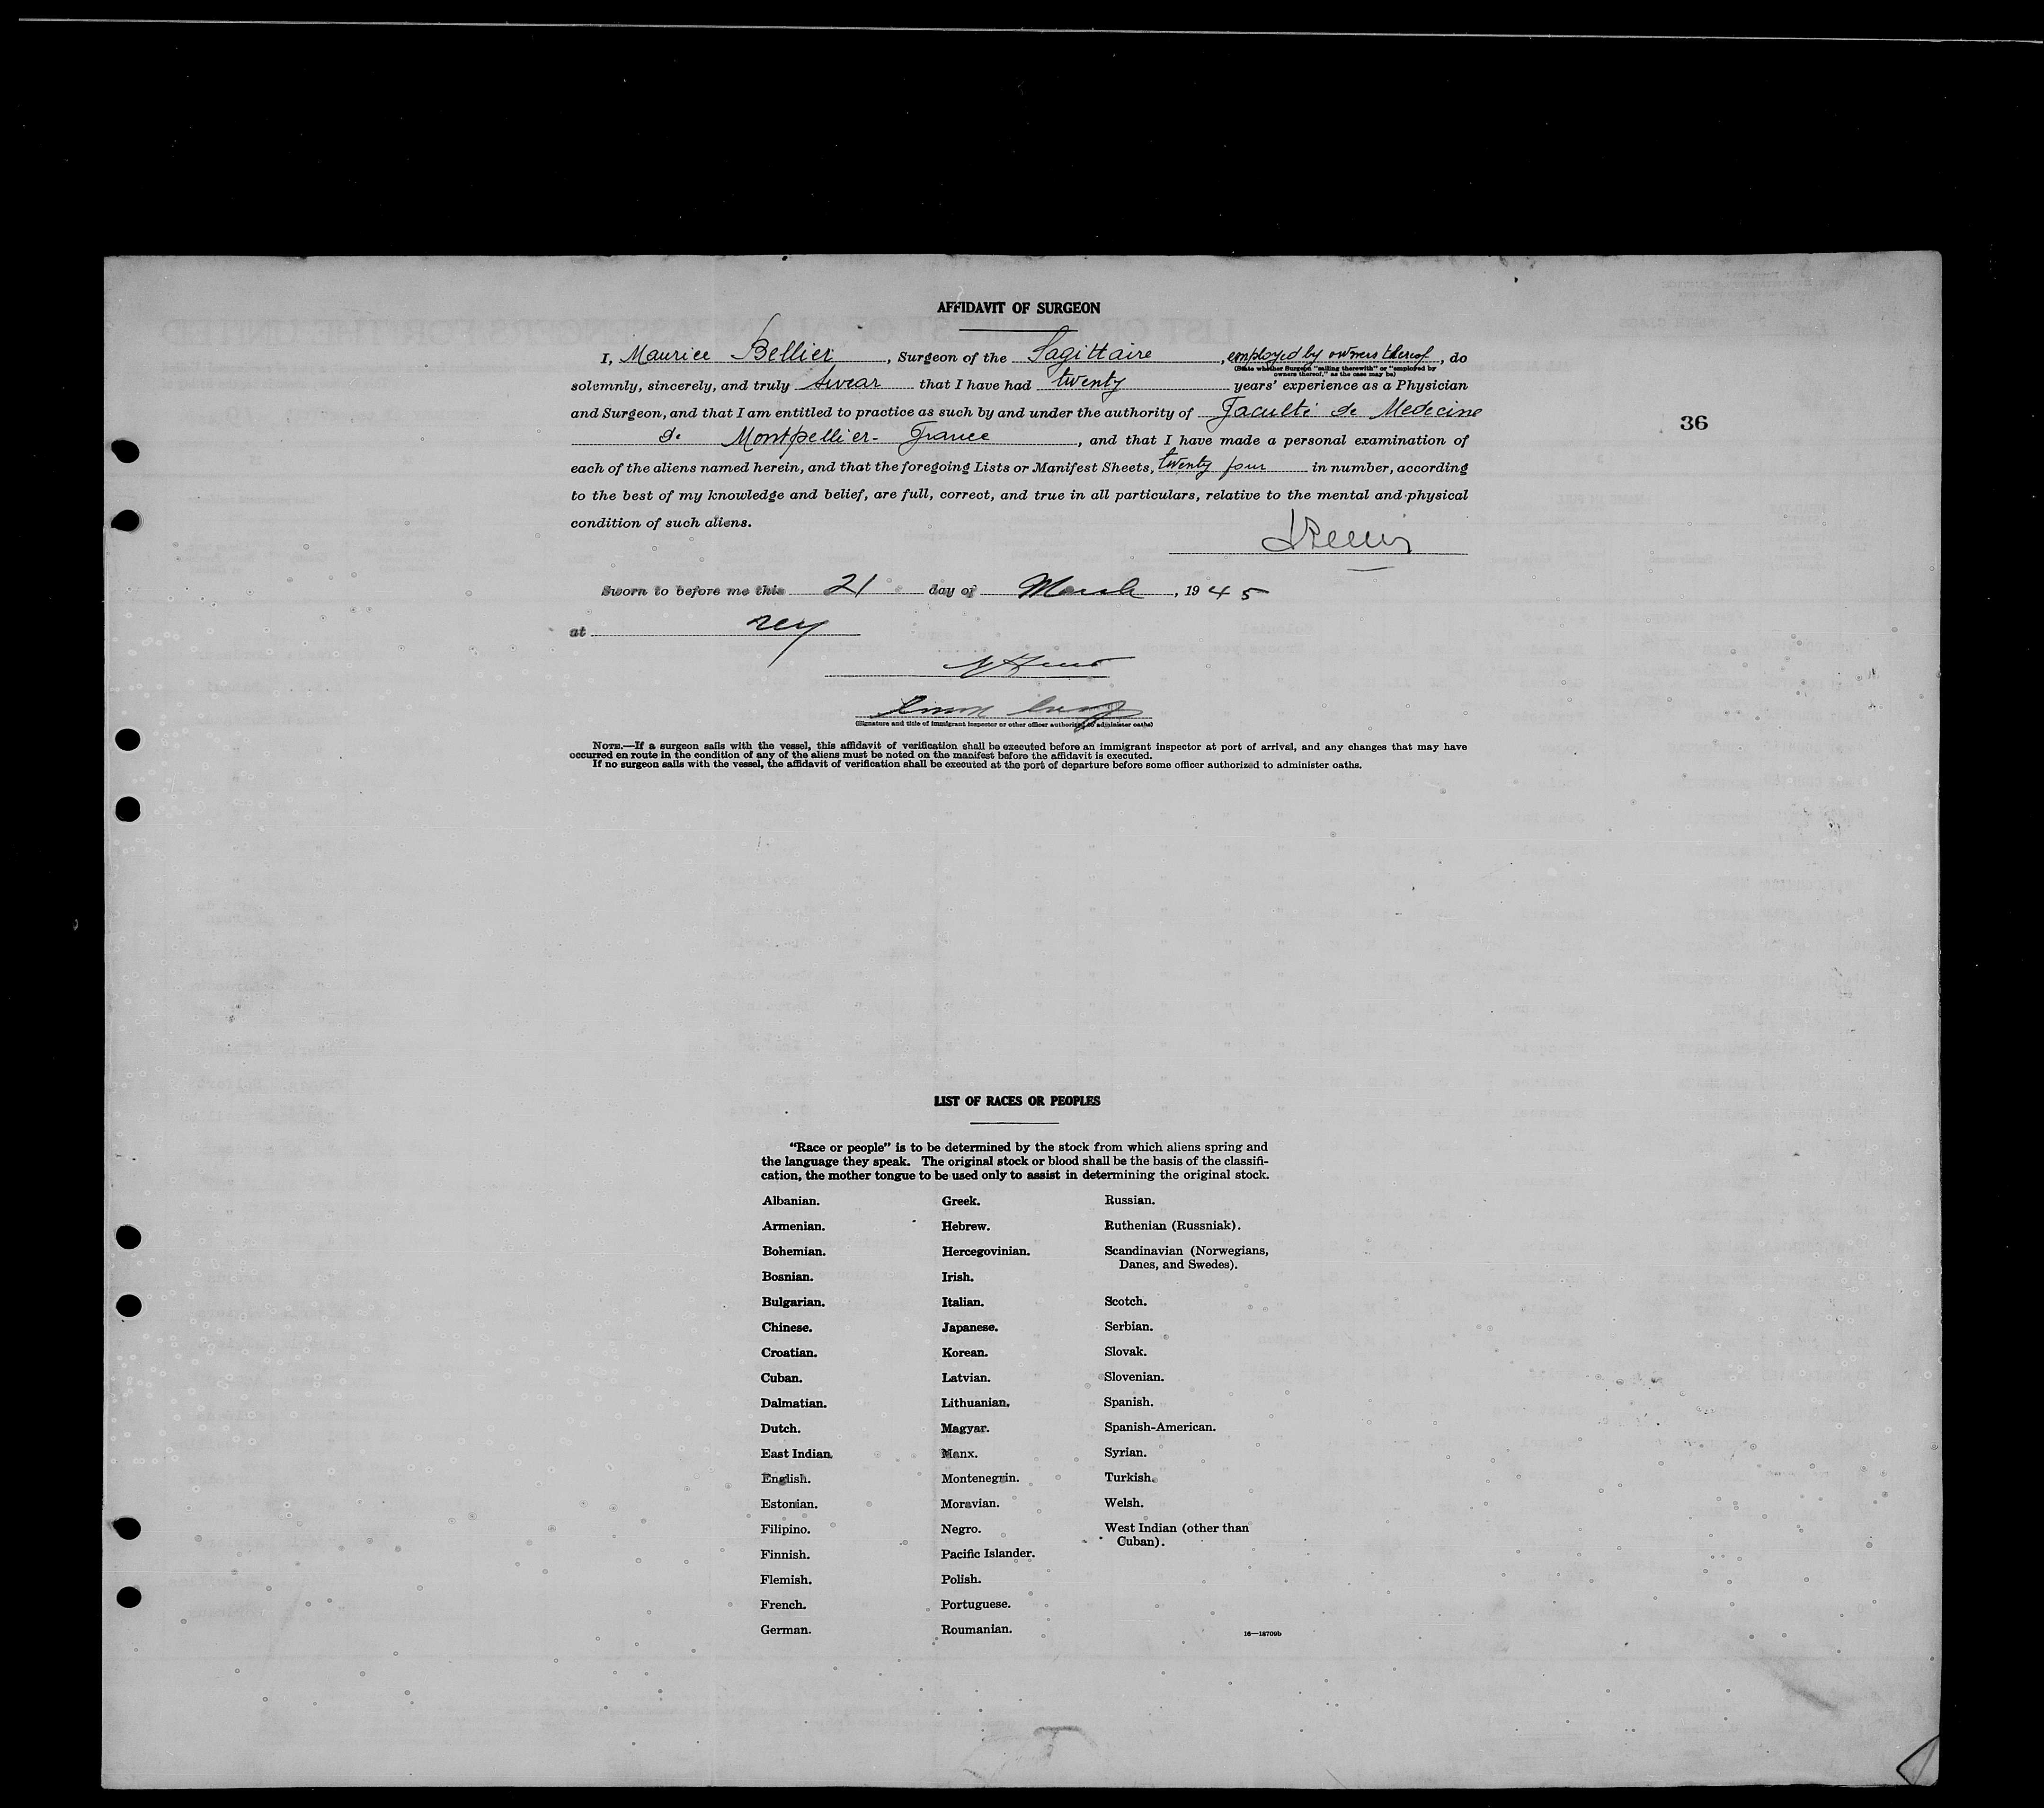 AFFIDAVIT OF SURGEON
I, Maurice Bellier, Surgeon of the Sagittaire, employed by owners thereof, do
(State whether Surgeon "sailing therewith" or "employed by
owners thereof," as the case may be)
solemnly, sincerely, and truly swear that I have had twenty years' experience as a Physician
and Surgeon, and that I am entitled to practice as such by and under the authority of Faculté de Medecine
36
de Montpellier - France, and that I have made a personal examination of
each of the aliens named herein, and that the foregoing Lists or Manifest Sheets, twenty four in number, according
to the best of my knowledge and belief, are full, correct, and true in all particulars, relative to the mental and physical
condition of such aliens.
Sworn to before me this 21 day of March, 1945
at
(Signature and title of immigrant inspector or other officer authorized to administer oaths)
NOTE.—If a surgeon sails with the vessel, this affidavit of verification shall be executed before an immigrant inspector at port of arrival, and any changes that may have
occurred en route in the condition of any of the aliens must be noted on the manifest before the affidavit is executed.
If no surgeon sails with the vessel, the affidavit of verification shall be executed at the port of departure before some officer authorized to administer oaths.
LIST OF RACES OR PEOPLES
"Race or people" is to be determined by the stock from which aliens spring and
the language they speak. The original stock or blood shall be the basis of the classifi-
cation, the mother tongue to be used only to assist in determining the original stock.
Albanian.
Armenian.
Bohemian.
Bosnian.
Bulgarian.
Chinese.
Croatian.
Cuban.
Dalmatian.
Dutch.
East Indian.
English.
Estonian.
Filipino.
Finnish.
Flemish.
French.
German.
Greek.
Hebrew.
Hercegovinian.
Irish.
Italian.
Japanese.
Korean.
Latvian.
Lithuanian.
Magyar.
Manx.
Montenegrin.
Moravian.
Negro.
Pacific Islander.
Polish.
Portuguese.
Roumanian.
Russian.
Ruthenian (Russniak).
Scandinavian (Norwegians,
Danes, and Swedes).
Scotch.
Serbian.
Slovak.
Slovenian.
Spanish.
Spanish-American.
Syrian.
Turkish.
Welsh.
West Indian (other than
Cuban).
16—18709b